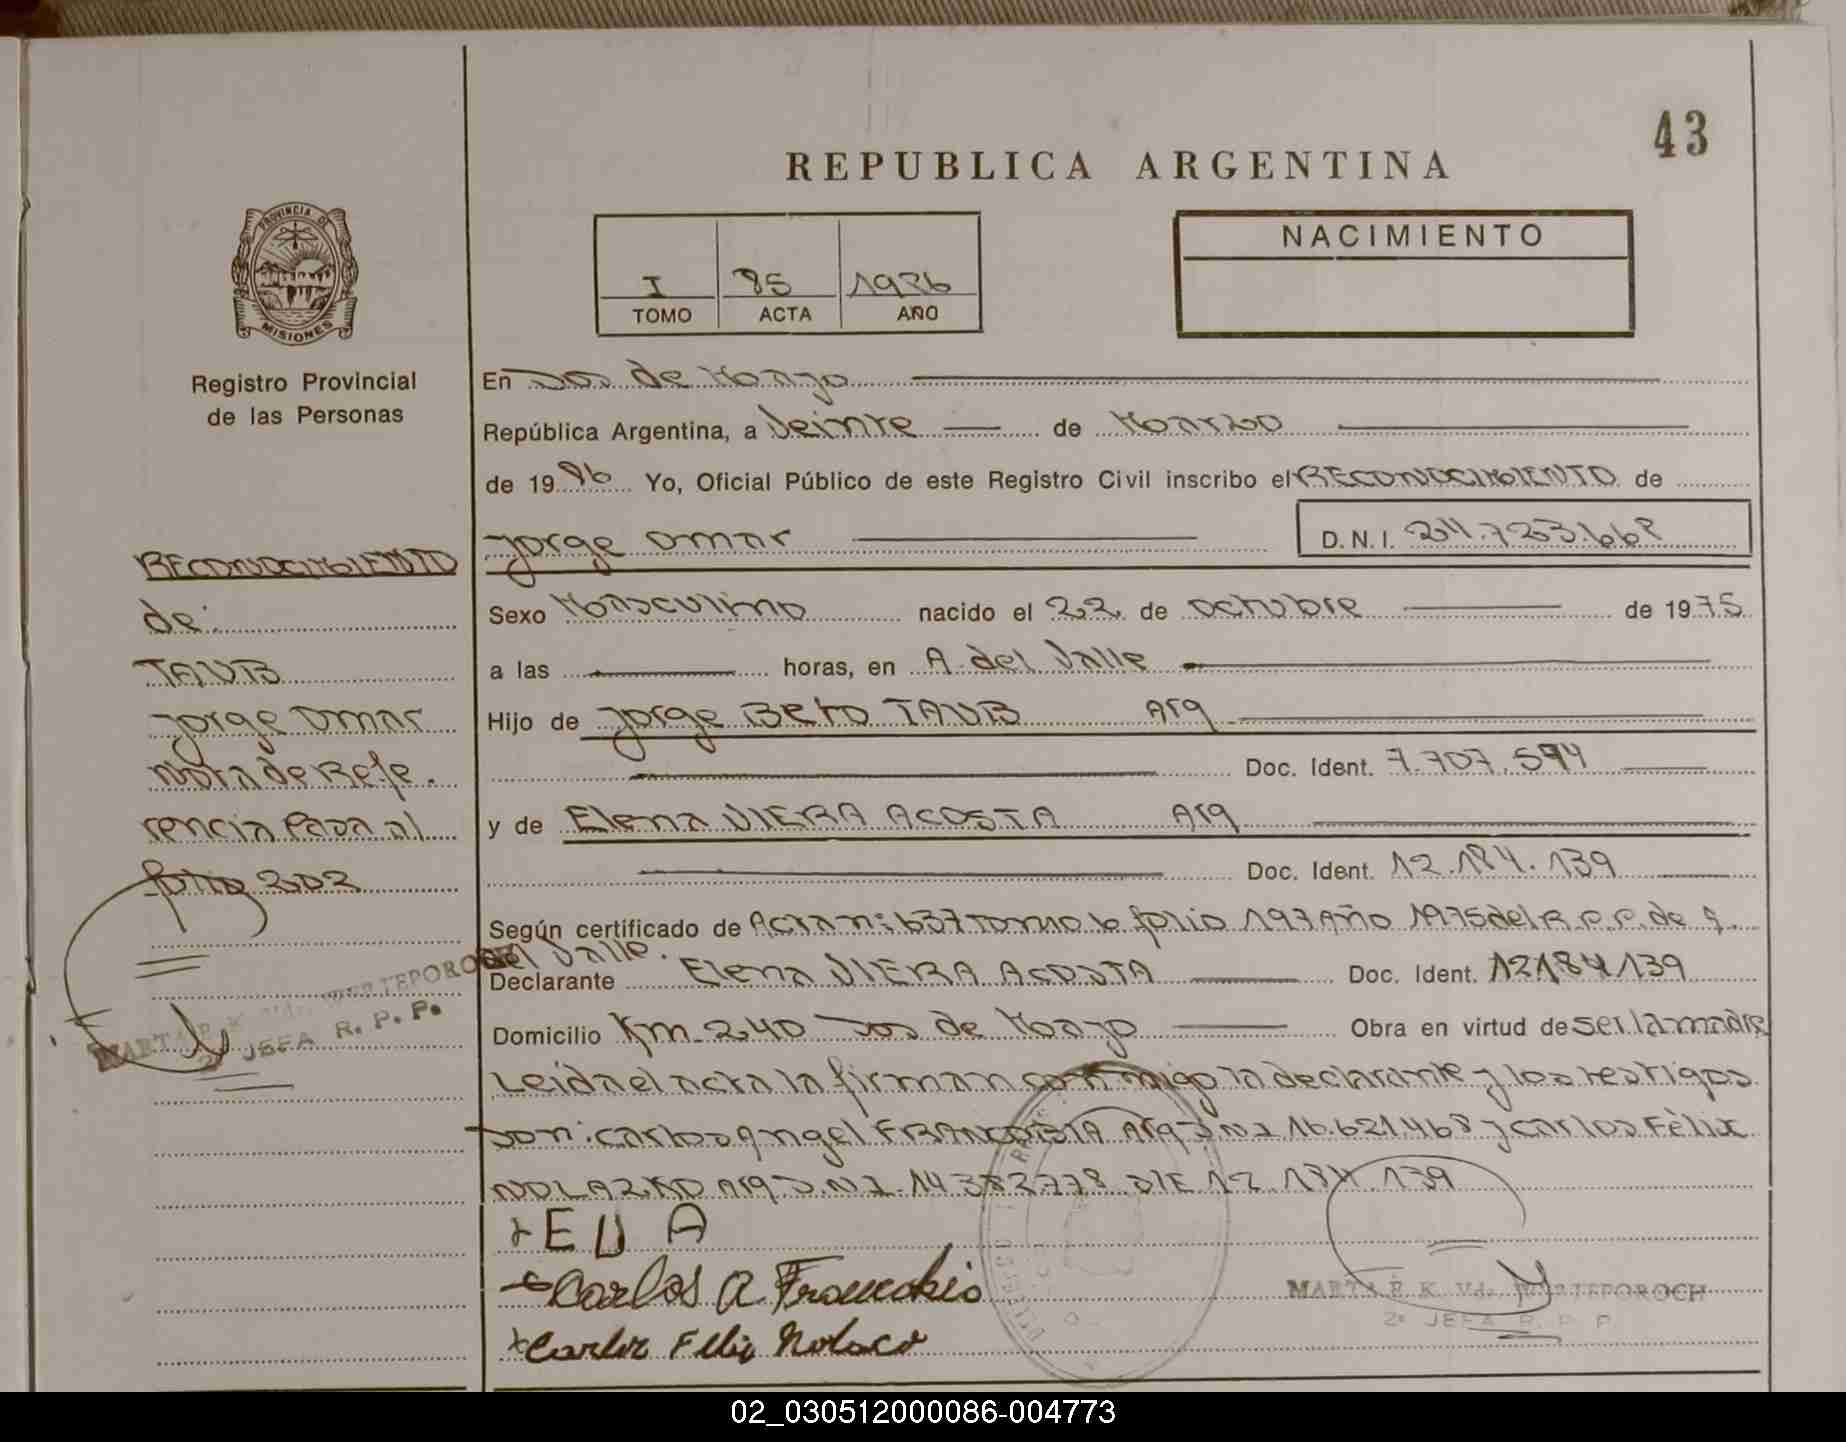 43
REPUBLICA ARGENTINA
PROVINCIA DE
MISIONES
I 85 1986
TOMO ACTA AÑO
NACIMIENTO
Registro Provincial
de las Personas
En Dos de Mayo
República Argentina, a Veinte de Marzo
de 1986 Yo, Oficial Público de este Registro Civil inscribo el RECONOCIMIENTO de
Jorge Omar D. N. I. 24.723.668
Sexo Masculino nacido el 22 de octubre de 1975
a las horas, en A. del Valle
Hijo de Jorge Beto TAUB Arg
Doc. Ident. 7.707.594
y de Elena VIERA ACOSTA Arg
Doc. Ident. 12.184.139
Según certificado de Acta n: 637 Tomo 6 folio 197 Año 1975 del R.P.P. de A.
del Valle.
Declarante Elena VIERA ACOSTA Doc. Ident. 12184139
Domicilio Km. 240 Dos de Mayo Obra en virtud de ser la madre
Leida el acta la firman conmigo la declarante y los testigos
Don: Carlos Angel Arg D.N.I 16.621.468 y Carlos Fèlix
Arg D.N.I. 14.382.778. 12.184.139
E V A
Carlos A.
Carlos Felix
MARTA E. K. Vda.
2º JEFA R. P. P.
RECONOCIMIENTO
de:
TAUB
Jorge Omar
Nota de Refe.
rencia Pasa al
folio 202
MARTA E. K. Vda.
2º JEFA R. P. P.
02_030512000086-004773